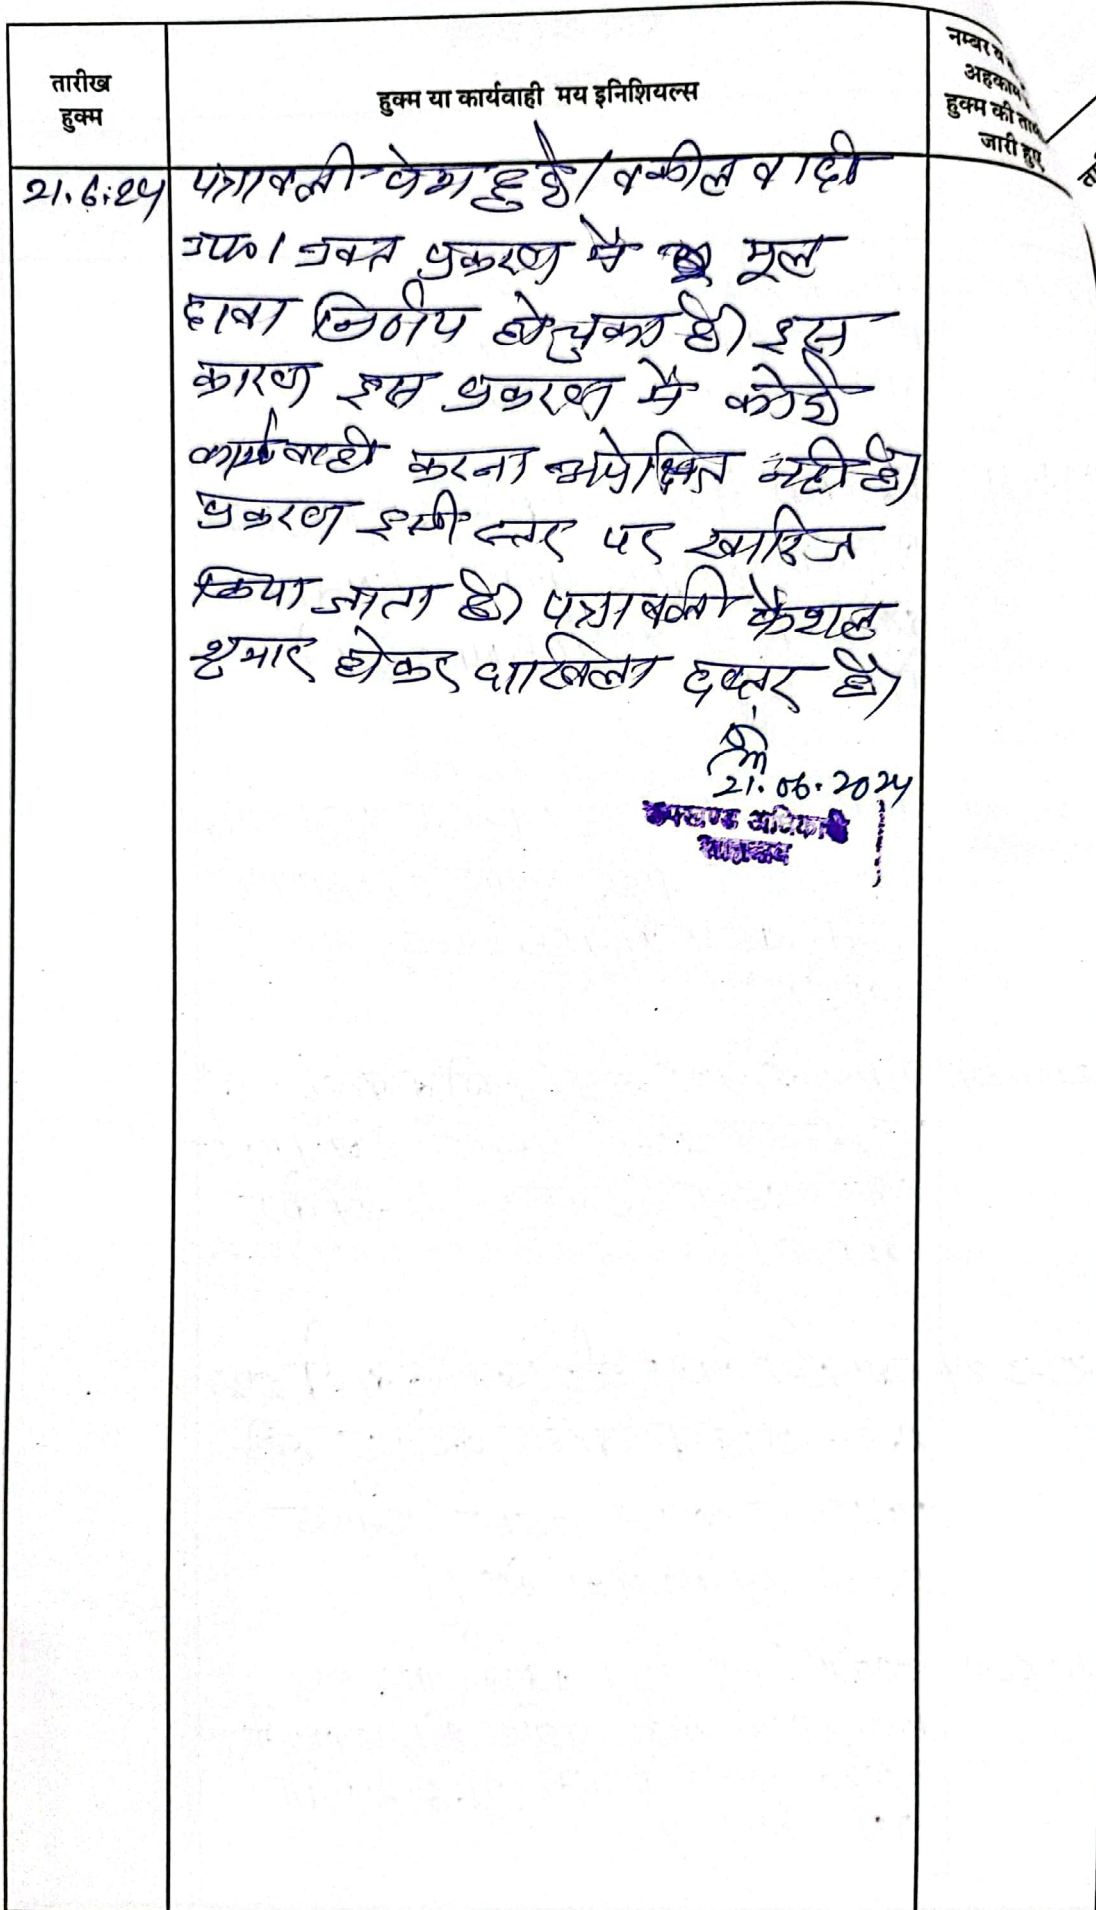 तारीख
हुक्म
हुक्म या कार्यवाही मय इनिशियल्स
नम्बर व
अहकाम
हुक्म की
जारी हुए
21.6.24
पत्रावली पेश हुई। वकील वादी
उप०। उक्त प्रकरण में मूल
दावा निर्णय हो चुका है। इस
कारण इस प्रकरण में कोई
कार्यवाही करना अपेक्षित नहीं है।
प्रकरण इसी स्तर पर खारिज
किया जाता है। पत्रावली फैशल
शुमार होकर दाखिल दफ्तर हो।
21.06.2024
उपखण्ड अधिकारी